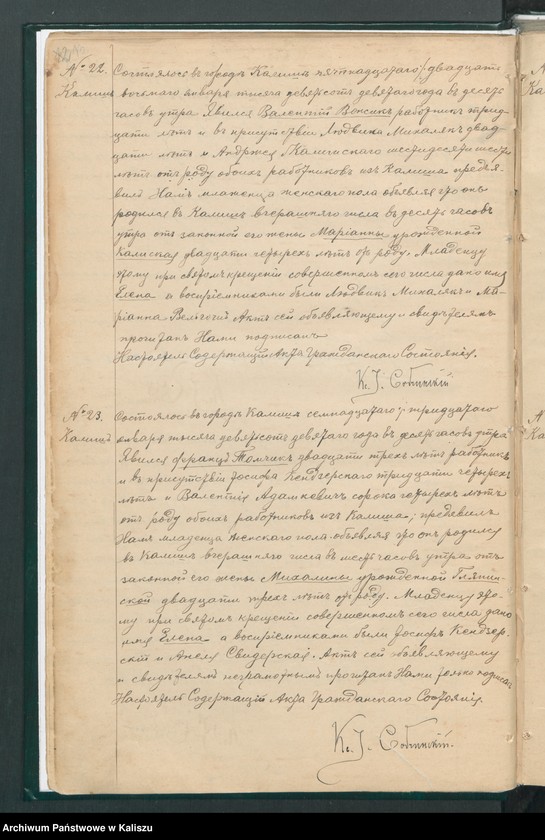 № 22.
Калишъ
Состоялось въ городѣ Калишѣ пятнадцатаго /: двадцать
восьмаго января тысяча девятсотъ девятаго года въ десять
часовъ утра Явился Валентій работникъ трид-
цати лѣтъ и въ присутствіи Людвика Михалякъ двад-
цати лѣтъ и Андржея Калиńскаго шестидесяти шести
лѣтъ отъ роду обоихъ работниковъ изъ Калиша предъя-
вилъ Намъ младенца женскаго пола объявляя что онъ
родился въ Калишѣ вчерашняго числа въ десять часовъ
утра отъ законной его жены Маріанны урожденной
двадцати четырехъ лѣтъ отъ роду. Младенцу
этому при святомъ крещеніи совершенномъ сего числа дано имя
Елена а воспріемниками были Людвикъ Михалякъ и Ма-
ріанна Актъ сей объявляющему и свидѣтелямъ
прочитанъ Нами подписанъ
Настоятель Содержащій Акта Гражданскаго Состоянія.
Кс. І. Собчинскій
№ 23.
Калишъ
Состоялось въ городѣ Калишѣ семнадцатаго /: тридцатаго
января тысяча девятсотъ девятаго года въ десять часовъ утра
Явился Францъ Томчикъ двадцати трехъ лѣтъ работникъ
и въ присутствіи Іосифа Кендзерскаго тридцати четырехъ
лѣтъ и Валентія Адамкевичъ сорока четырехъ лѣтъ
отъ роду обоихъ работниковъ изъ Калиша; предъявилъ
Намъ младенца женскаго пола объявляя что онъ родился
въ Калишѣ вчерашняго числа въ шесть часовъ утра отъ
законной его жены Михалины урожденной
двадцати трехъ лѣтъ отъ роду. Младенцу это-
му при святомъ крещеніи совершенномъ сего числа дано
имя Елена а воспріемниками были Іосифъ Кендзер-
скій и Анеля Свидерская. Актъ сей объявляющему
и свидѣтелямъ неграмотнымъ прочитанъ Нами только подписанъ
Настоятель Содержащій Акта Гражданскаго Состоянія
Кс. І. Собчинскій.
Archiwum Państwowe w Kaliszu